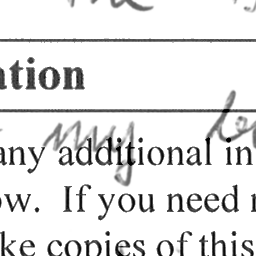 ation
my
any additional in
ow. If you need
ke copies of this